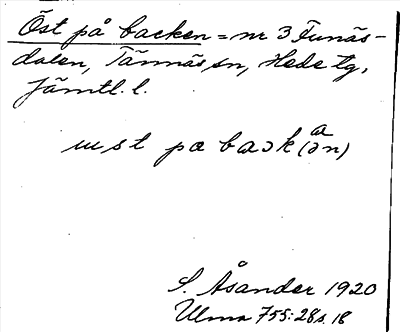 Öst på backen = nr 3 Funäs-
dalen, Tännäs sn, Hede tg,
Jämtl. l.
a
ust pa baɔk(ən)
S. Åsander 1920
Ulma 755:28 s. 18